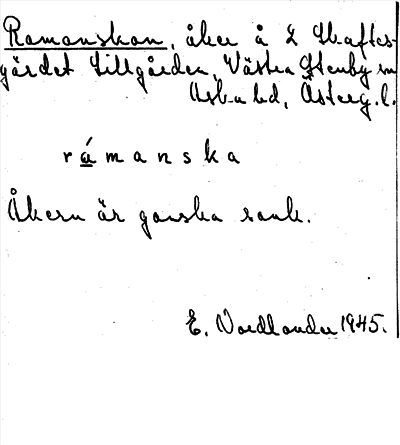 Ramanskan, åker å L Skaftes-
gärdet Lillgården, Västra Stenby sn
Aska hd, Österg. l.
ramanska
Åkern är ganska sank.
E. Nordlander 1945.